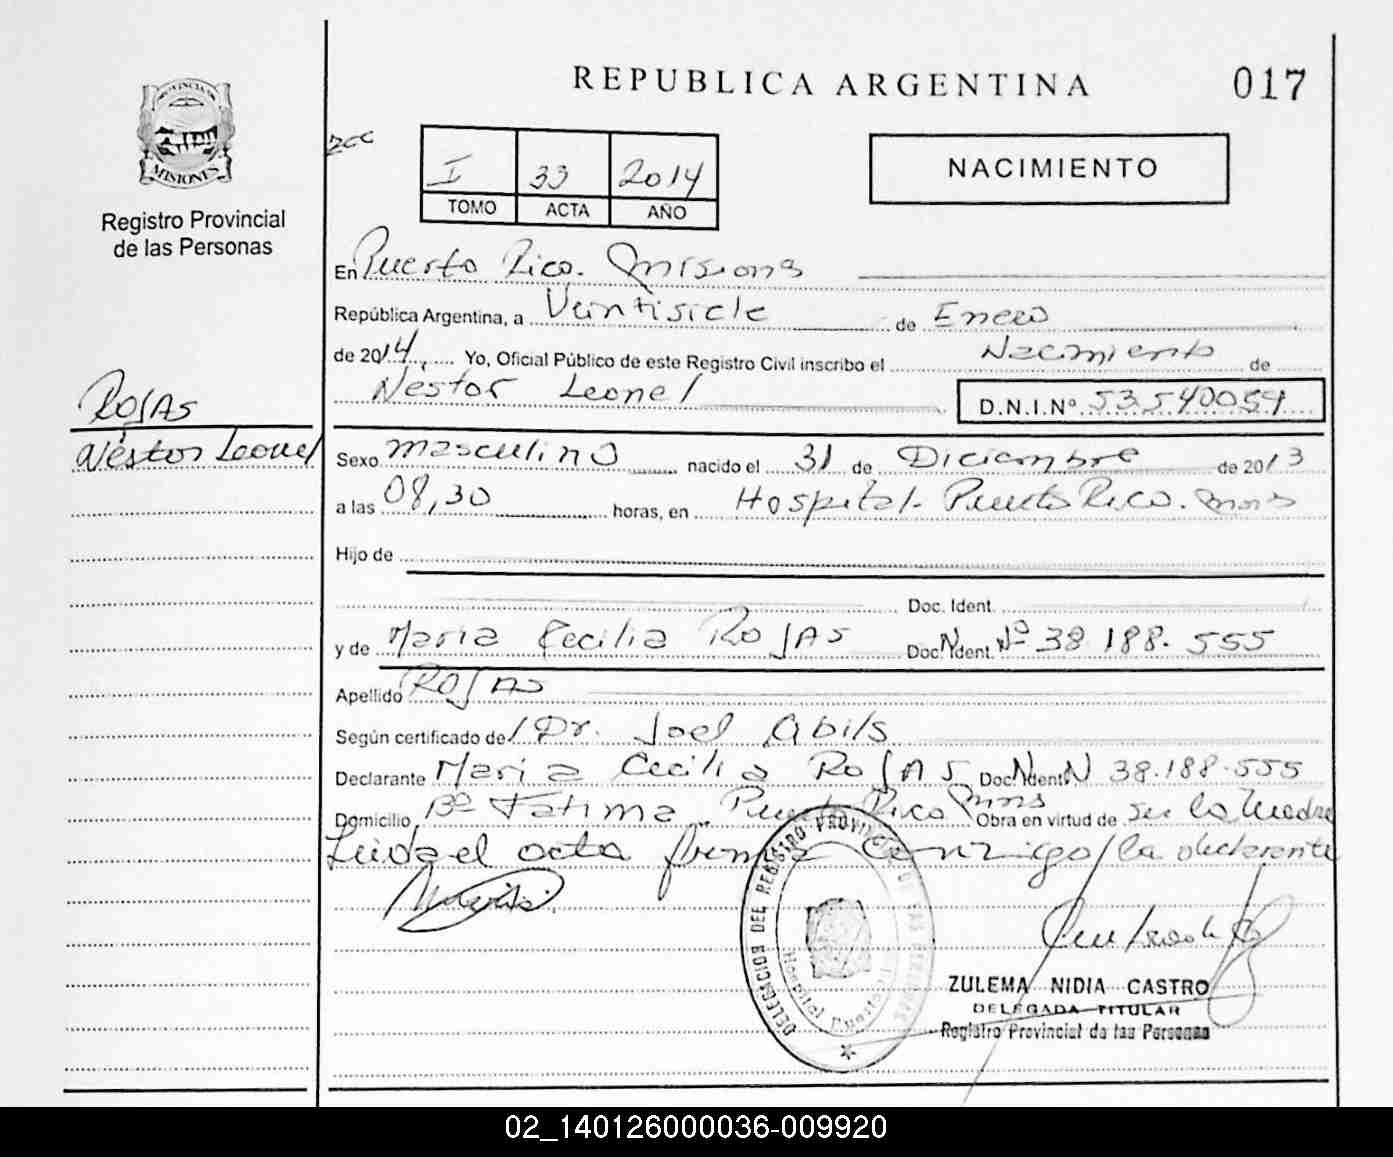 REPUBLICA ARGENTINA
017
PROVINCIA DE
MISIONES
Registro Provincial
de las Personas
I 33 2014
TOMO ACTA AÑO
NACIMIENTO
En Puerto Rico. Misiones
República Argentina, a Veintisiete de Enero
de 2014. Yo, Oficial Público de este Registro Civil inscribo el Nacimiento de
Nestor Leonel D.N.I.Nº 53540059
ROJAS
Néstor Leonel
Sexo masculino nacido el 31 de Diciembre de 2013
a las 08,30 horas, en Hospital Puerto Rico. Mnes
Hijo de
Doc. Ident.
y de Maria Cecilia ROJAS Doc. Ident. Nº 38.188.555
Apellido ROJAS
Según certificado de/ Dr. Joel
Declarante Maria Cecilia ROJAS Doc. Ident. 38.188.555
Domicilio Bº Fatima. Puerto Rico Mnes Obra en virtud de ser la Madre
Leida el acta firma conmigo/la declarante
DELEGACION DEL REGISTRO PROVINCIAL DE LAS PERSONAS
Hospital
ZULEMA NIDIA CASTRO
DELEGADA TITULAR
Registro Provincial de las Personas
02_140126000036-009920